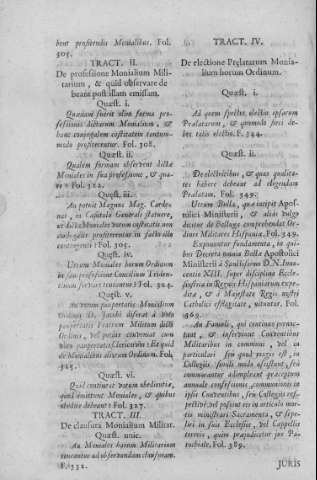 bent profitendis Monialibus. Fol.
305.
TRACT. II.
De professione Monialium Mili-
tarium, & quid observare de
beant post illam emissam.
Quæst. i.
Quænam fuerit olim forma pro-
fessionis dictarum Monialium, &
hanc conjugalem castitatem tantum-
modo profiterentur. Fol. 308.
Quæst. ii.
Qualem formam observent dictæ
Moniales in sua professione, & quæ-
re? Fol. 312.
Quæst. iii.
An potuit Magnus Mag. Cardo-
nus, in Capitulo Generali statuere,
ut dictæ Moniales votum castitatis non
conjugalis profiterentur in
contingenti? Fol. 305.
Quæst. iv.
Utrum Moniales horum Ordinum
in sua professione Concilium Triden-
tinum servare teneantur? Fol. 324.
Quæst. v.
An votum paupertatis Monialium
Ordinis D. Jacobi diferat à voto
paupertatis Fratrum Militum dicti
Ordinis, vel potius conveniat cum
voto paupertatis Clericorum? Et quid
de Monialibus aliorum Ordinum. Fol.
325.
Quæst. vi.
Quid contineat votum obedientiæ,
quod emittunt Moniales, & quibus
obedire debeant? Fol. 327.
TRACT. III.
De clausura Monialium Militar.
Quæst. unic.
An Moniales harum Militarium
teneantur ad observandam clausuram.
Fol. 332.
TRACT. IV.
De electione Prælatarum Monia-
lium horum Ordinum.
Quæst. i.
Ad quem spectet electio ipsarum
Prælatarum, & quomodo fieri de-
bet talis electio. F. 344.
Quæst. ii.
De electricibus, & quas qualita-
tes habere debeant ad eligendam
Prælatam. Fol. 349.
Utrum Bulla, quæ incipit Apos-
tolici Ministerii, & dicitur vulgo
dicitur de Belluga comprehendat Or-
dines Militares Hispanæ. Fol. 349.
Expenuntur fundamenta, in qui-
bus Decreta nuncia Bulla Apostolici
Ministerii à Sanctissimo D. N. Inno-
centio XIII. super disciplina Eccle-
siastica in Regnis Hispaniarum expe-
dita, & à Majestate Regis nostri
Catholici efflagitate, nitantur. Fol.
369.
An Famuli, qui continuo perma-
nent, & inserviunt Conventibus
Militaribus in communi, vel in
particulari seu quod magis est, in
Collegiis simili modo assistunt, seu
commorantur adimpleant præceptum
annuale confessionis, communionis in
ipsis Conventibus, seu Collegiis res-
pectivè; vel possint eis in articulo mor-
tis ministrari Sacramenta, & sepe-
liri in suis Ecclesiis, vel Cappellis
terreis, quin præjudicetur jus Pa-
rochiale. Fol. 389.
JURIS